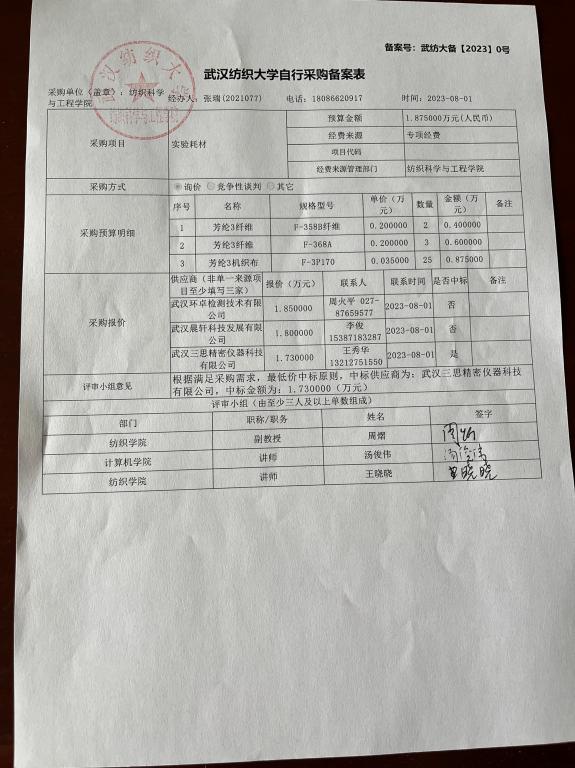 备案号：武纺大备【2023】0号
武汉纺织大学自行采购备案表
采购单位（盖章）：纺织科学与工程学院 经办人：张瑞(2021077) 电话：18086620917 时间：2023-08-01
采购项目 实验耗材 预算金额 1.875000万元(人民币)
经费来源 专项经费
项目代码
经费来源管理部门 纺织科学与工程学院
采购方式 询价 竞争性谈判 其它
采购预算明细 序号 名称 规格型号 单价（万元） 数量 金额（万元） 备注
1 芳纶3纤维 F-358B纤维 0.200000 2 0.400000
2 芳纶3纤维 F-368A 0.200000 3 0.600000
3 芳纶3机织布 F-3P170 0.035000 25 0.875000
采购报价 供应商（非单一来源项目至少填写三家） 报价（万元） 联系人 联系时间 是否中标 备注
武汉环卓检测技术有限公司 1.850000 周火平 027-87659577 2023-08-01 否
武汉晨轩科技发展有限公司 1.800000 李俊 15387183287 2023-08-01 否
武汉三思精密仪器科技有限公司 1.730000 王秀华 13212751550 2023-08-01 是
评审小组意见 根据满足采购需求，最低价中标原则，中标供应商为：武汉三思精密仪器科技有限公司，中标金额为：1.730000（万元）
评审小组（由至少三人及以上单数组成）
部门 职称/职务 姓名 签字
纺织学院 副教授 周熠
计算机学院 讲师 汤俊伟
纺织学院 讲师 王晓晓
武汉纺织大学
纺织科学与工程学院